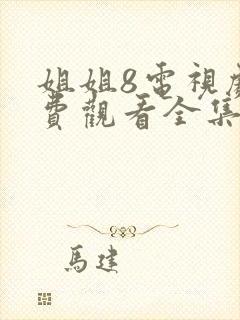 姐姐8電視劇
費觀看全集
馬建